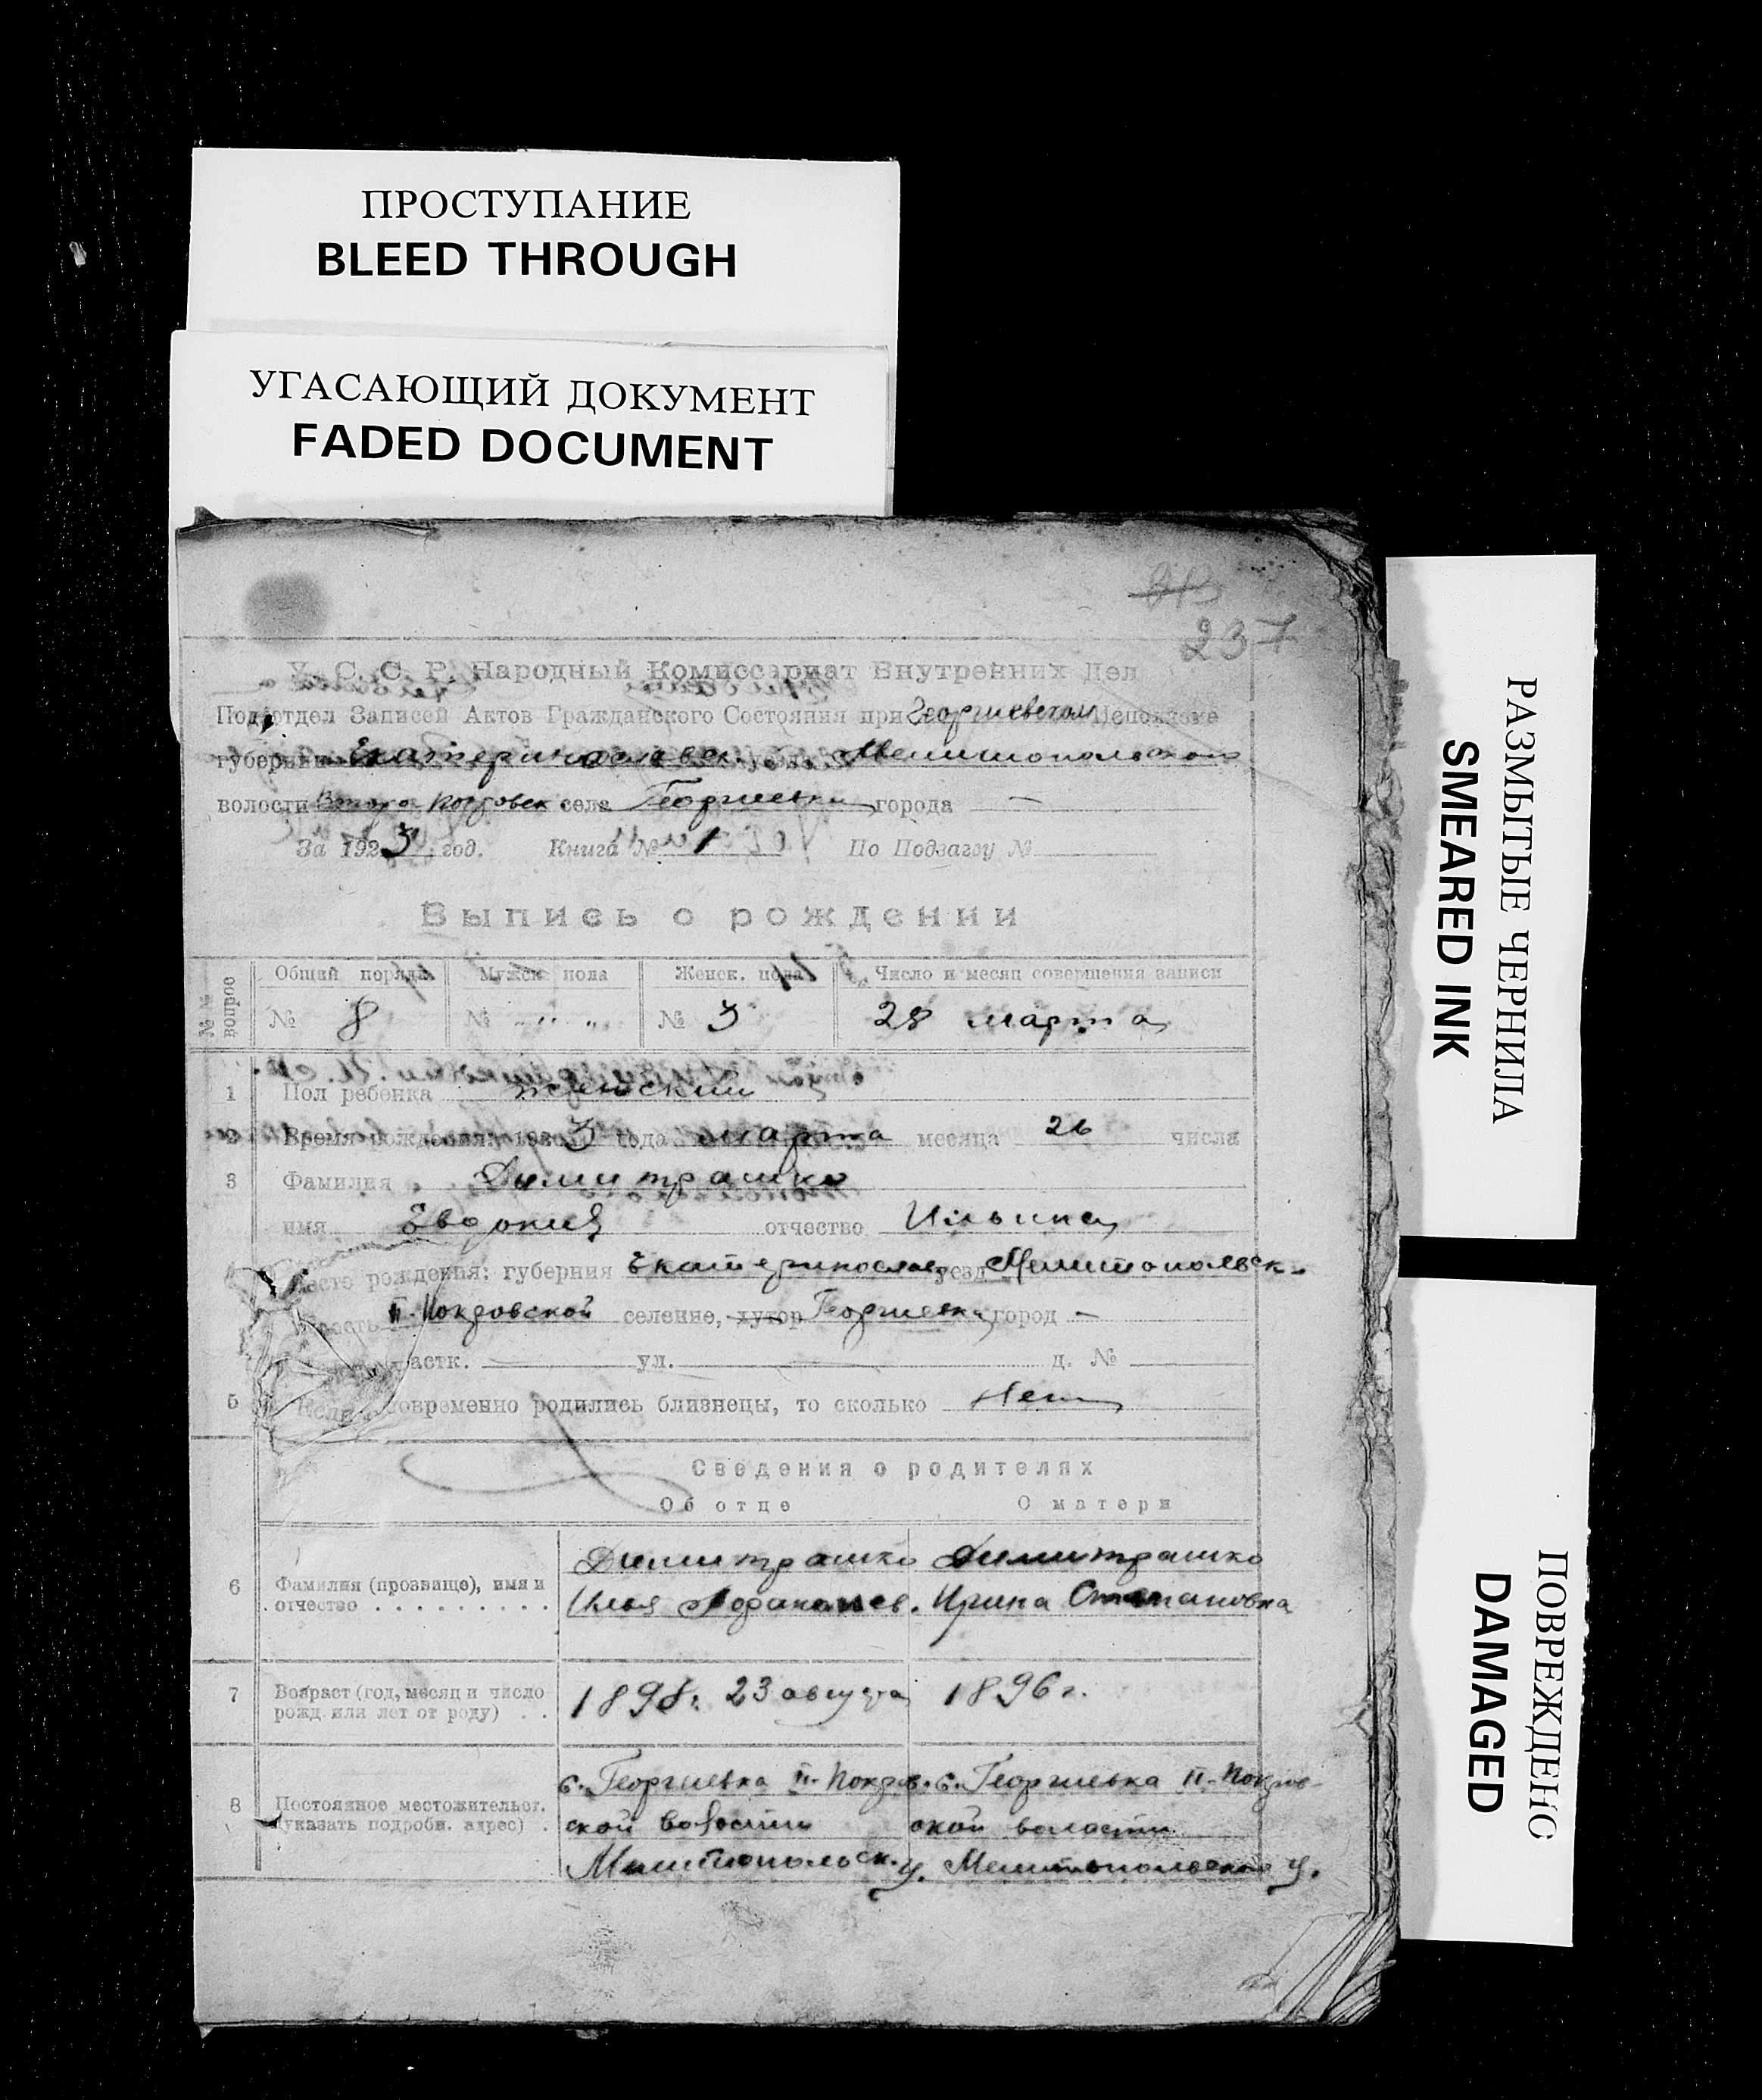 ПРОСТУПАНИЕ
BLEED THROUGH
УГАСАЮЩИЙ ДОКУМЕНТ
FADED DOCUMENT
237
У. С. С. Р. Народный Комиссариат Внутренних Дел
Подотдел Записей Актов Гражданского Состояния при Георгиевском Исполкоме
губернии Екатеринославск. уезда Мелитопольского
волости Второ Покровск села Георгиевки города —
За 1923 год. Книга № 1 По Подзагсу №
Выпись о рождении
№№ вопрос
Общий порядк. Мужск. пола Женск. пола Число и месяц совершения записи
№ 8 № „ „ № 3 28 марта
1 Пол ребенка женский
2 Время рождения: 1923 года марта месяца 26 числа
3 Фамилия Димитрашко
имя Евдокия отчество Ильина
Место рожденья: губерния Екатеринослав. уезд Мелитопольск.
II-Покровской селение, хутор Георгиевка город —
астк. ул. д. №
5 Если одновременно родились близнецы, то сколько Нет
Сведения о родителях
Об отце О матери
6 Фамилия (прозвище), имя и отчество . . . . . . . . .
Димитрашко Димитрашко
Илья Ирина Степановна
7 Возраст (год, месяц и число рожд. или лет от роду) . .
1898г. 23 августа 1896 г.
8 Постоянное местожительст. (указать подробн. адрес) .
с. Георгиевка II-Покров. с. Георгиевка II-Покров-
ской волости ской волости
Мелитопольск. у. Мелитопольской у.
РАЗМЫТЫЕ ЧЕРНИЛА
SMEARED INK
ПОВРЕЖДЕНО
DAMAGED